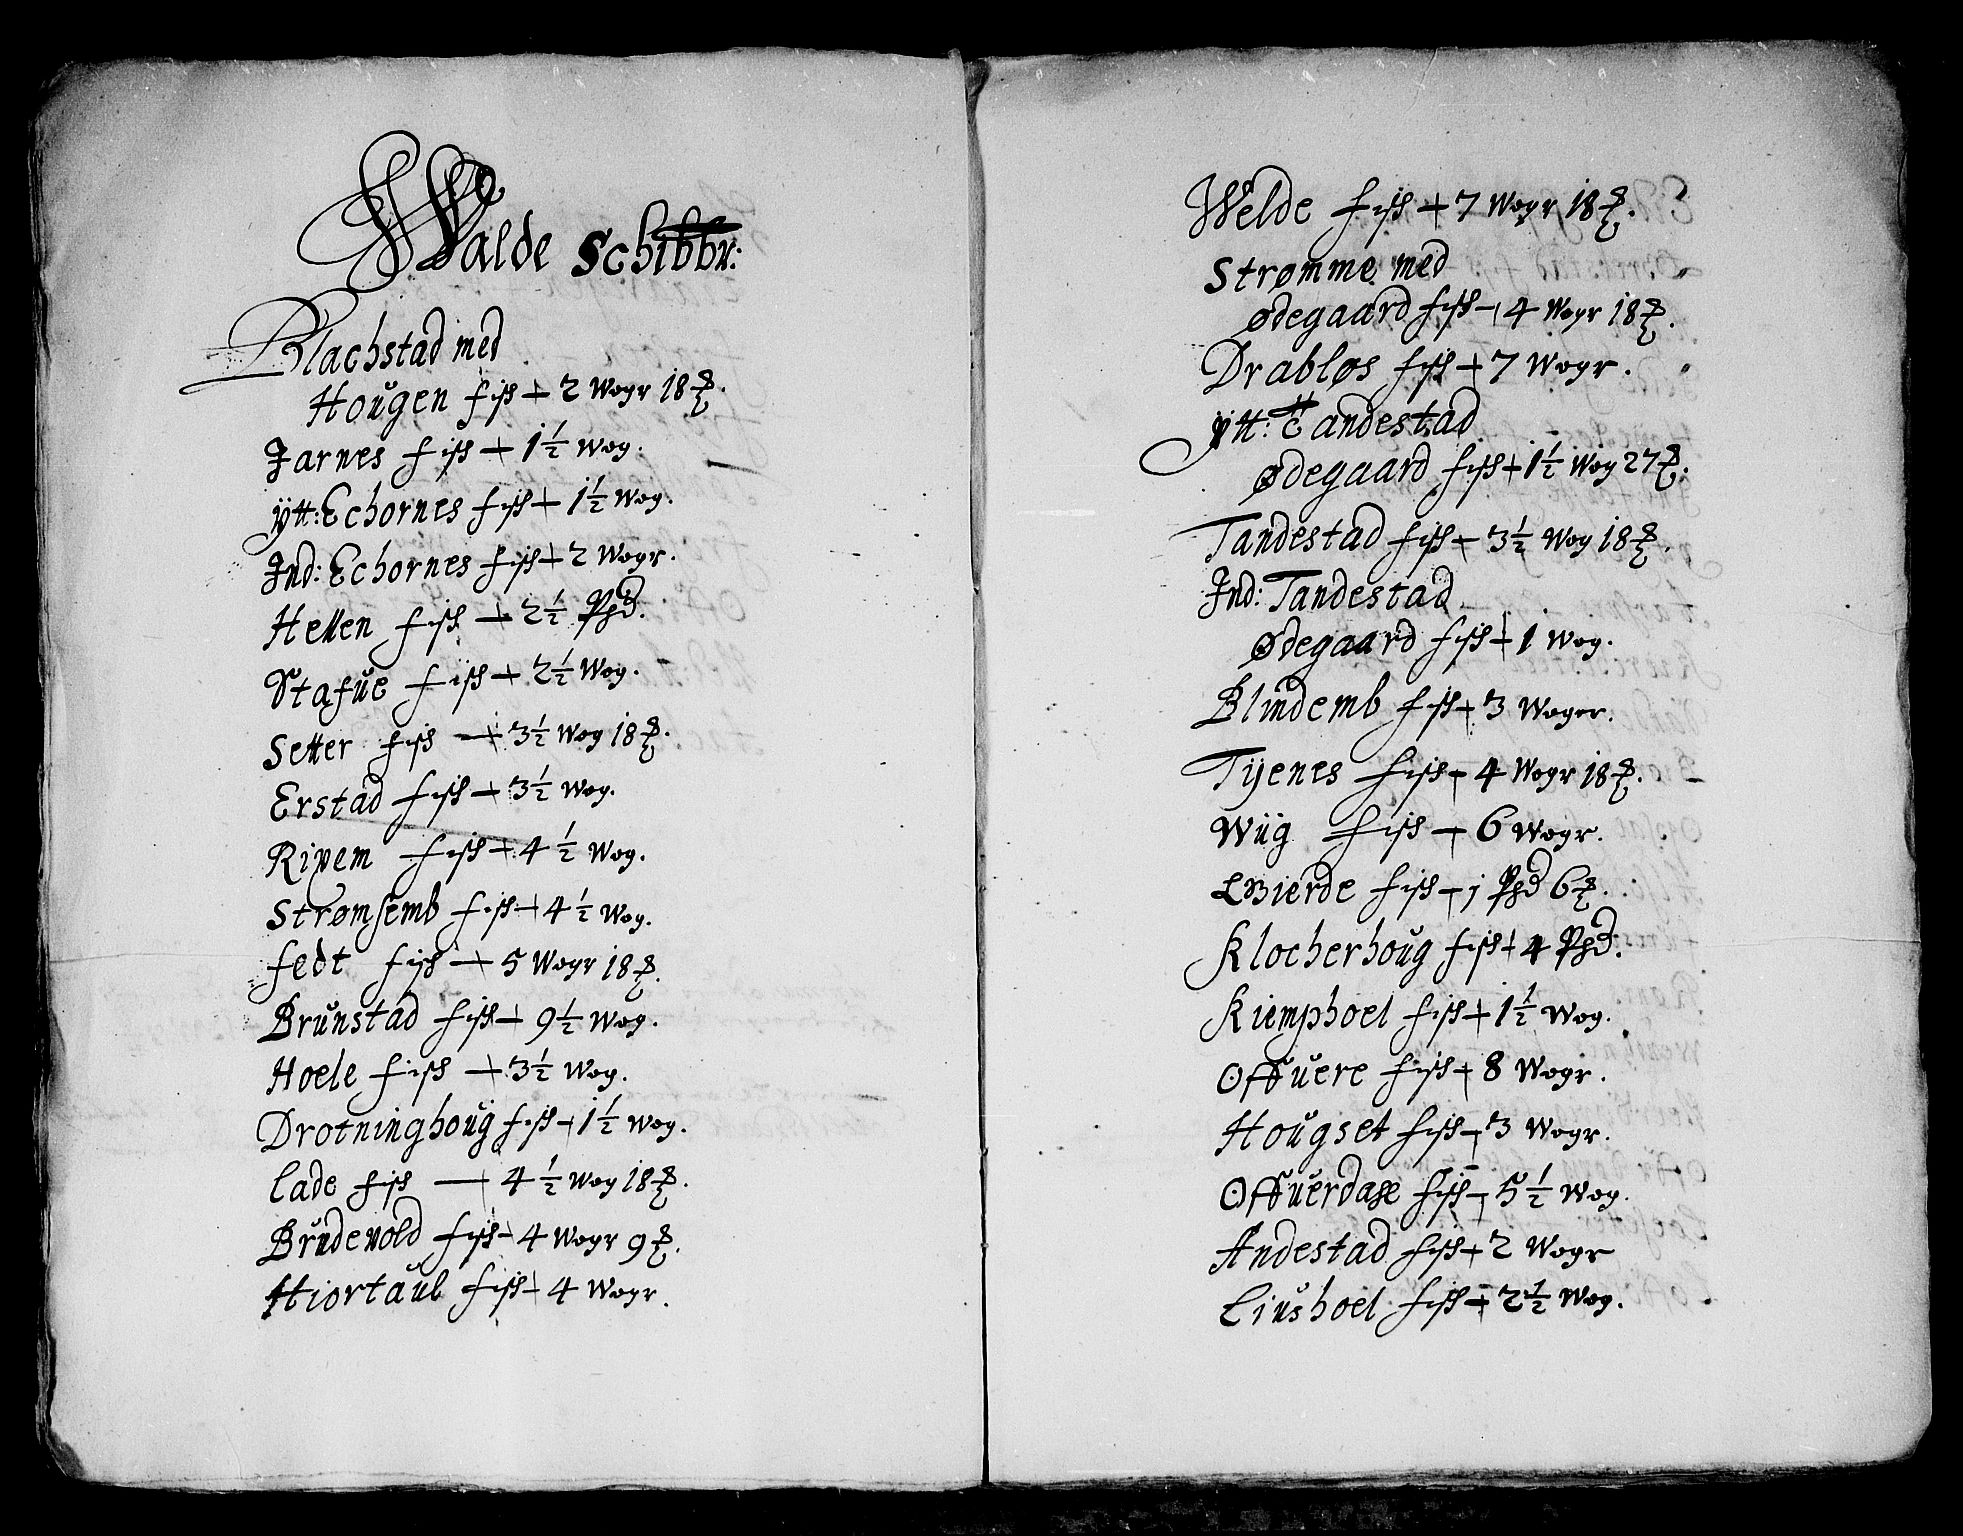 Walde Schibbr:
Blachstad med
Hougen fisk 2 Wogr 18 ℔.
Jarnes fisk 1½ Wog.
ÿtt: Echornes fisk 1½ Wog.
Jnd: Echornes fisk 2 Wogr.
Hellen fisk 2½ Phd.
Stafue fisk 2½ Wog.
Setter fisk 3½ Wog 18 ℔.
Erstad fisk 3½ Wog.
Rivem fisk 4½ Wog.
Strømsemb fisk 4½ Wog.
fedt fisk 5 Wogr 18 ℔.
Brunstad fisk 9½ Wog.
Hoele fisk 3½ Wog.
Drotninghoug fisk 1½ Wog.
Lade fisk 4½ Wog 18 ℔.
Brudevold fisk 4 Wogr 9 ℔.
Hiortaul fisk 4 Wogr.
Welde fisk 7 Wogr 18 ℔.
Strømme med
ødegaard fisk 4 Wogr 18 ℔.
Drabløs fisk 7 Wogr.
ÿtt: Tandestad
Ødegaard fisk 1½ Wog 27 ℔.
Tandestad fisk 3½ Wog 18 ℔.
Jnd: Tandestad
Ødegaard fisk 1 Wog.
Blindemb fisk 3 Woger.
Tÿenes fisk 4 Wogr 18 ℔.
Wiig fisk 6 Wogr.
Bierde fisk j Phd 6 ℔.
Klocherhoug fisk 4 Phd.
Kiemphoel fisk 1½ Wog.
Offuere fisk 8 Wogr.
Hougset fisk 3 Wogr.
Offuerdase fisk 5½ Wog.
Andestad fisk 2 Wogr
Liushoel fisk 2½ Wog.